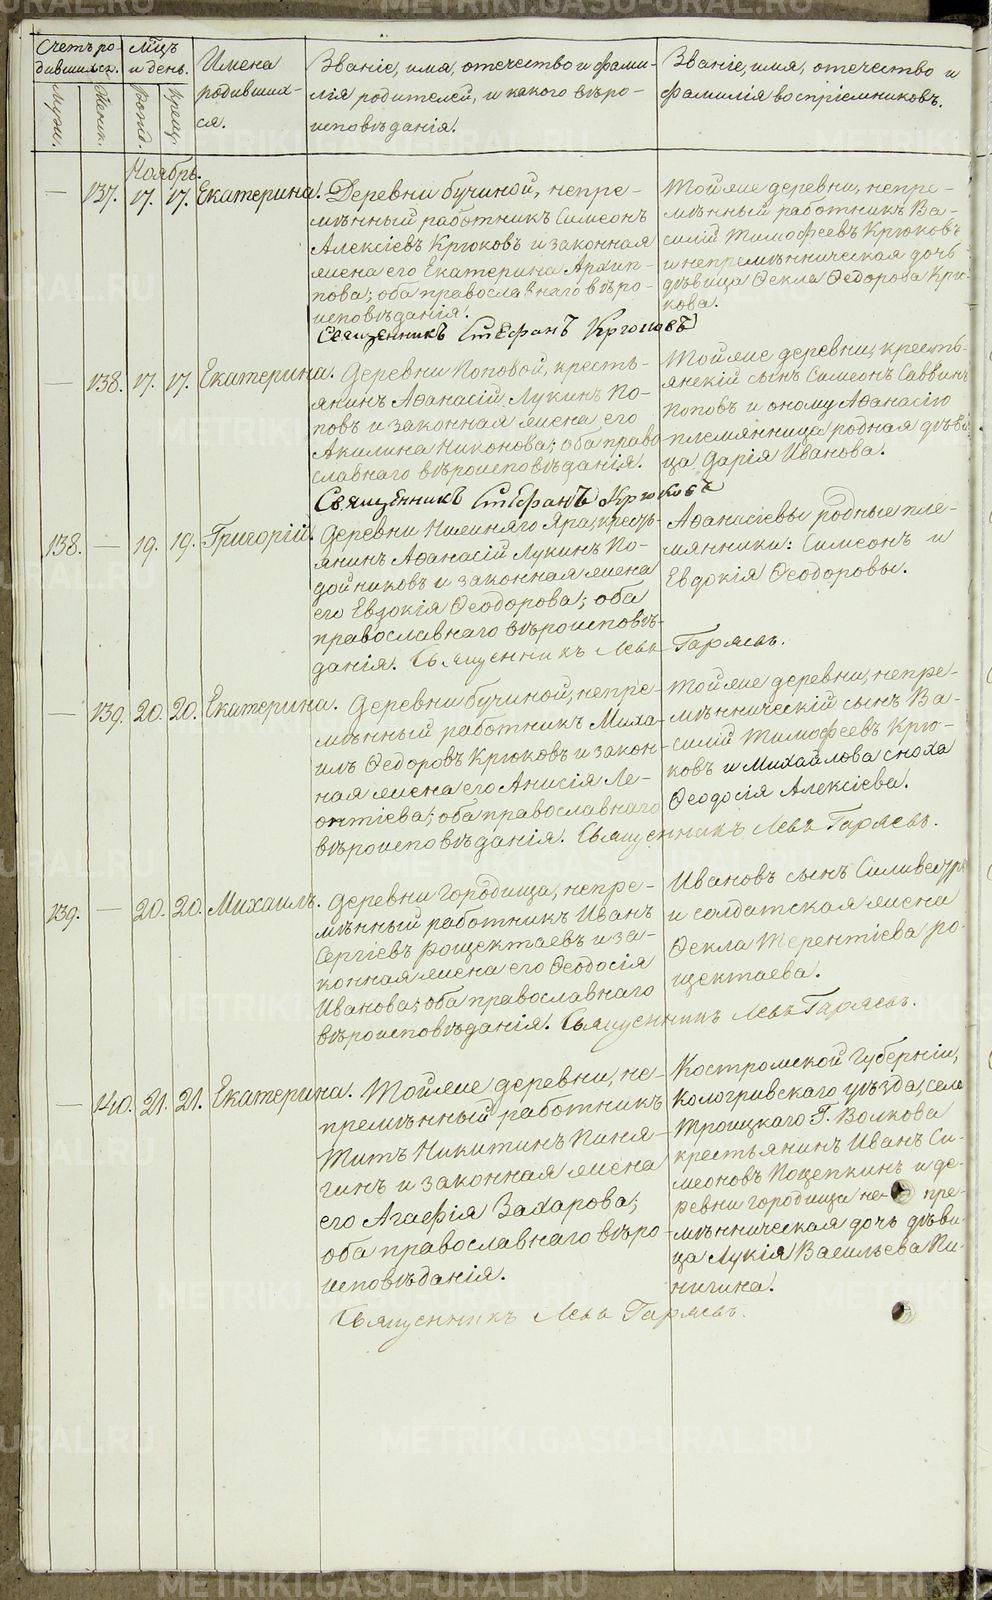 Счетъ ро-
дившихся.
Мѣц.
и день.
Имена
родивших-
ся.
Званіе, имя, отечество и фами-
лія родителей, и какого вѣро-
исповѣданія.
Званіе, имя, отечество и
фамилія воспріемниковъ.
Муж.
Женск.
Рожд.
Крещ.
Ноябрь.
— 137. 17. 17. Екатерина.
Деревни Бучиной, непре-
мѣнный работникъ Симеонъ
Алексіевъ Крюковъ и законная
жена его Екатерина Архип-
пова; оба православнаго вѣро-
исповѣданія.
Священникъ Стефанъ Крюковъ
Тойже деревни, непре-
мѣнный работникъ Ва-
силій Тимофеевъ Крюковъ
и непремѣнническая дочь
дѣвица Ѳекла Ѳедорова Крю-
кова.
— 138. 17. 17. Екатерина.
Деревни Поповой, кресть-
янинъ Аѳанасій Лукинъ По-
повъ и законная жена его
Акилина Никонова; оба право-
славнаго вѣроисповѣданія.
Священникъ Стефанъ Крюковъ
Тойже деревни, кресть-
янскій сынъ Симеонъ Саввинъ
Поповъ и оному Аѳанасію
племянница родная дѣви-
ца Дарія Иванова.
138. — 19. 19. Григорій.
Деревни Нижняго Яра, кресть-
янинъ Аѳанасій Лукинъ По-
дойниковъ и законная жена
его Евдокія Ѳеодорова; оба
православнаго вѣроисповѣ-
данія. Священникъ Левъ Гаряевъ.
Аѳанасіевы родные пле-
мянники: Симеонъ и
Евдокія Ѳеодоровы.
— 139. 20. 20. Екатерина.
Деревни Бучиной, непре-
мѣнный работникъ Миха-
илъ Ѳедоровъ Крюковъ и закон-
ная жена его Анисія Ле-
онтіева; оба православнаго
вѣроисповѣданія. Священникъ Левъ Гаряевъ.
Тойже деревни, непре-
мѣнническій сынъ Ва-
силій Тимофеевъ Крю-
ковъ и Михайлова сноха
Ѳеодосія Алексіева.
139. — 20. 20. Михаилъ.
Деревни Городища, непре-
мѣнный работникъ Иванъ
Сергіевъ Рощектаевъ и за-
конная жена его Ѳеодосія
Иванова; оба православнаго
вѣроисповѣданія. Священникъ Левъ Гаряевъ.
Ивановъ сынъ Силивестръ
и солдатская жена
Ѳекла Терентіева Ро-
щектаева.
— 140. 21. 21. Екатерина.
Тойже деревни, не-
премѣнный работникъ
Титъ Никитинъ Пиня-
гинъ и законная жена
его Агафія Захарова;
оба православнаго вѣро-
исповѣданія.
Священникъ Левъ Гаряевъ.
Костромской Губерніи,
Кологривскаго уѣзда, села
Троицкаго Г. Волкова
крестьянинъ Иванъ Си-
меоновъ Пощепкинъ и де-
ревни Городища не- пре-
мѣнническая дочь дѣви-
ца Лукія Васильева Пи-
нигина.
METRIKI.GASO-URAL.RU